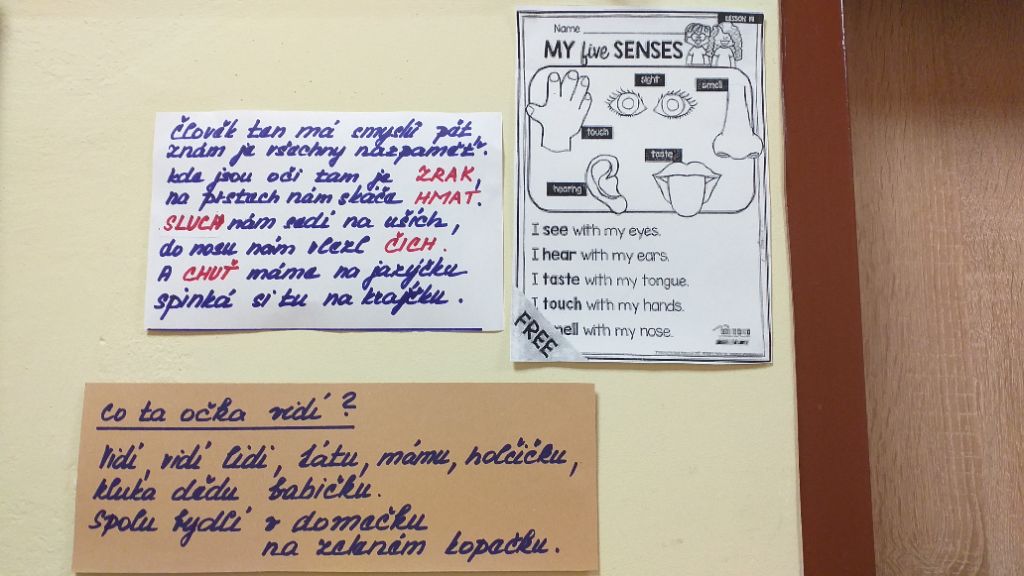 Člověk ten má smyslů pět,
znám je všechny nazpaměť.
kde jsou oči tam je ZRAK,
na prstech nám skáče HMAT.
SLUCH nám sedí na uších,
do nosu nám vlezl ČICH.
A CHUŤ máme na jazýčku
spinká si tu na krajíčku.
LESSON
Name
MY five SENSES
sight
smell
touch
taste
hearing
I see with my eyes.
I hear with my ears.
I taste with my tongue.
I touch with my hands.
FREE
with my nose.
Co ta očka vidí?
Vidí, vidí lidi, tátu, mámu, holčičku,
kluka dědu babičku.
Spolu bydlí v domečku
na zeleném kopečku.